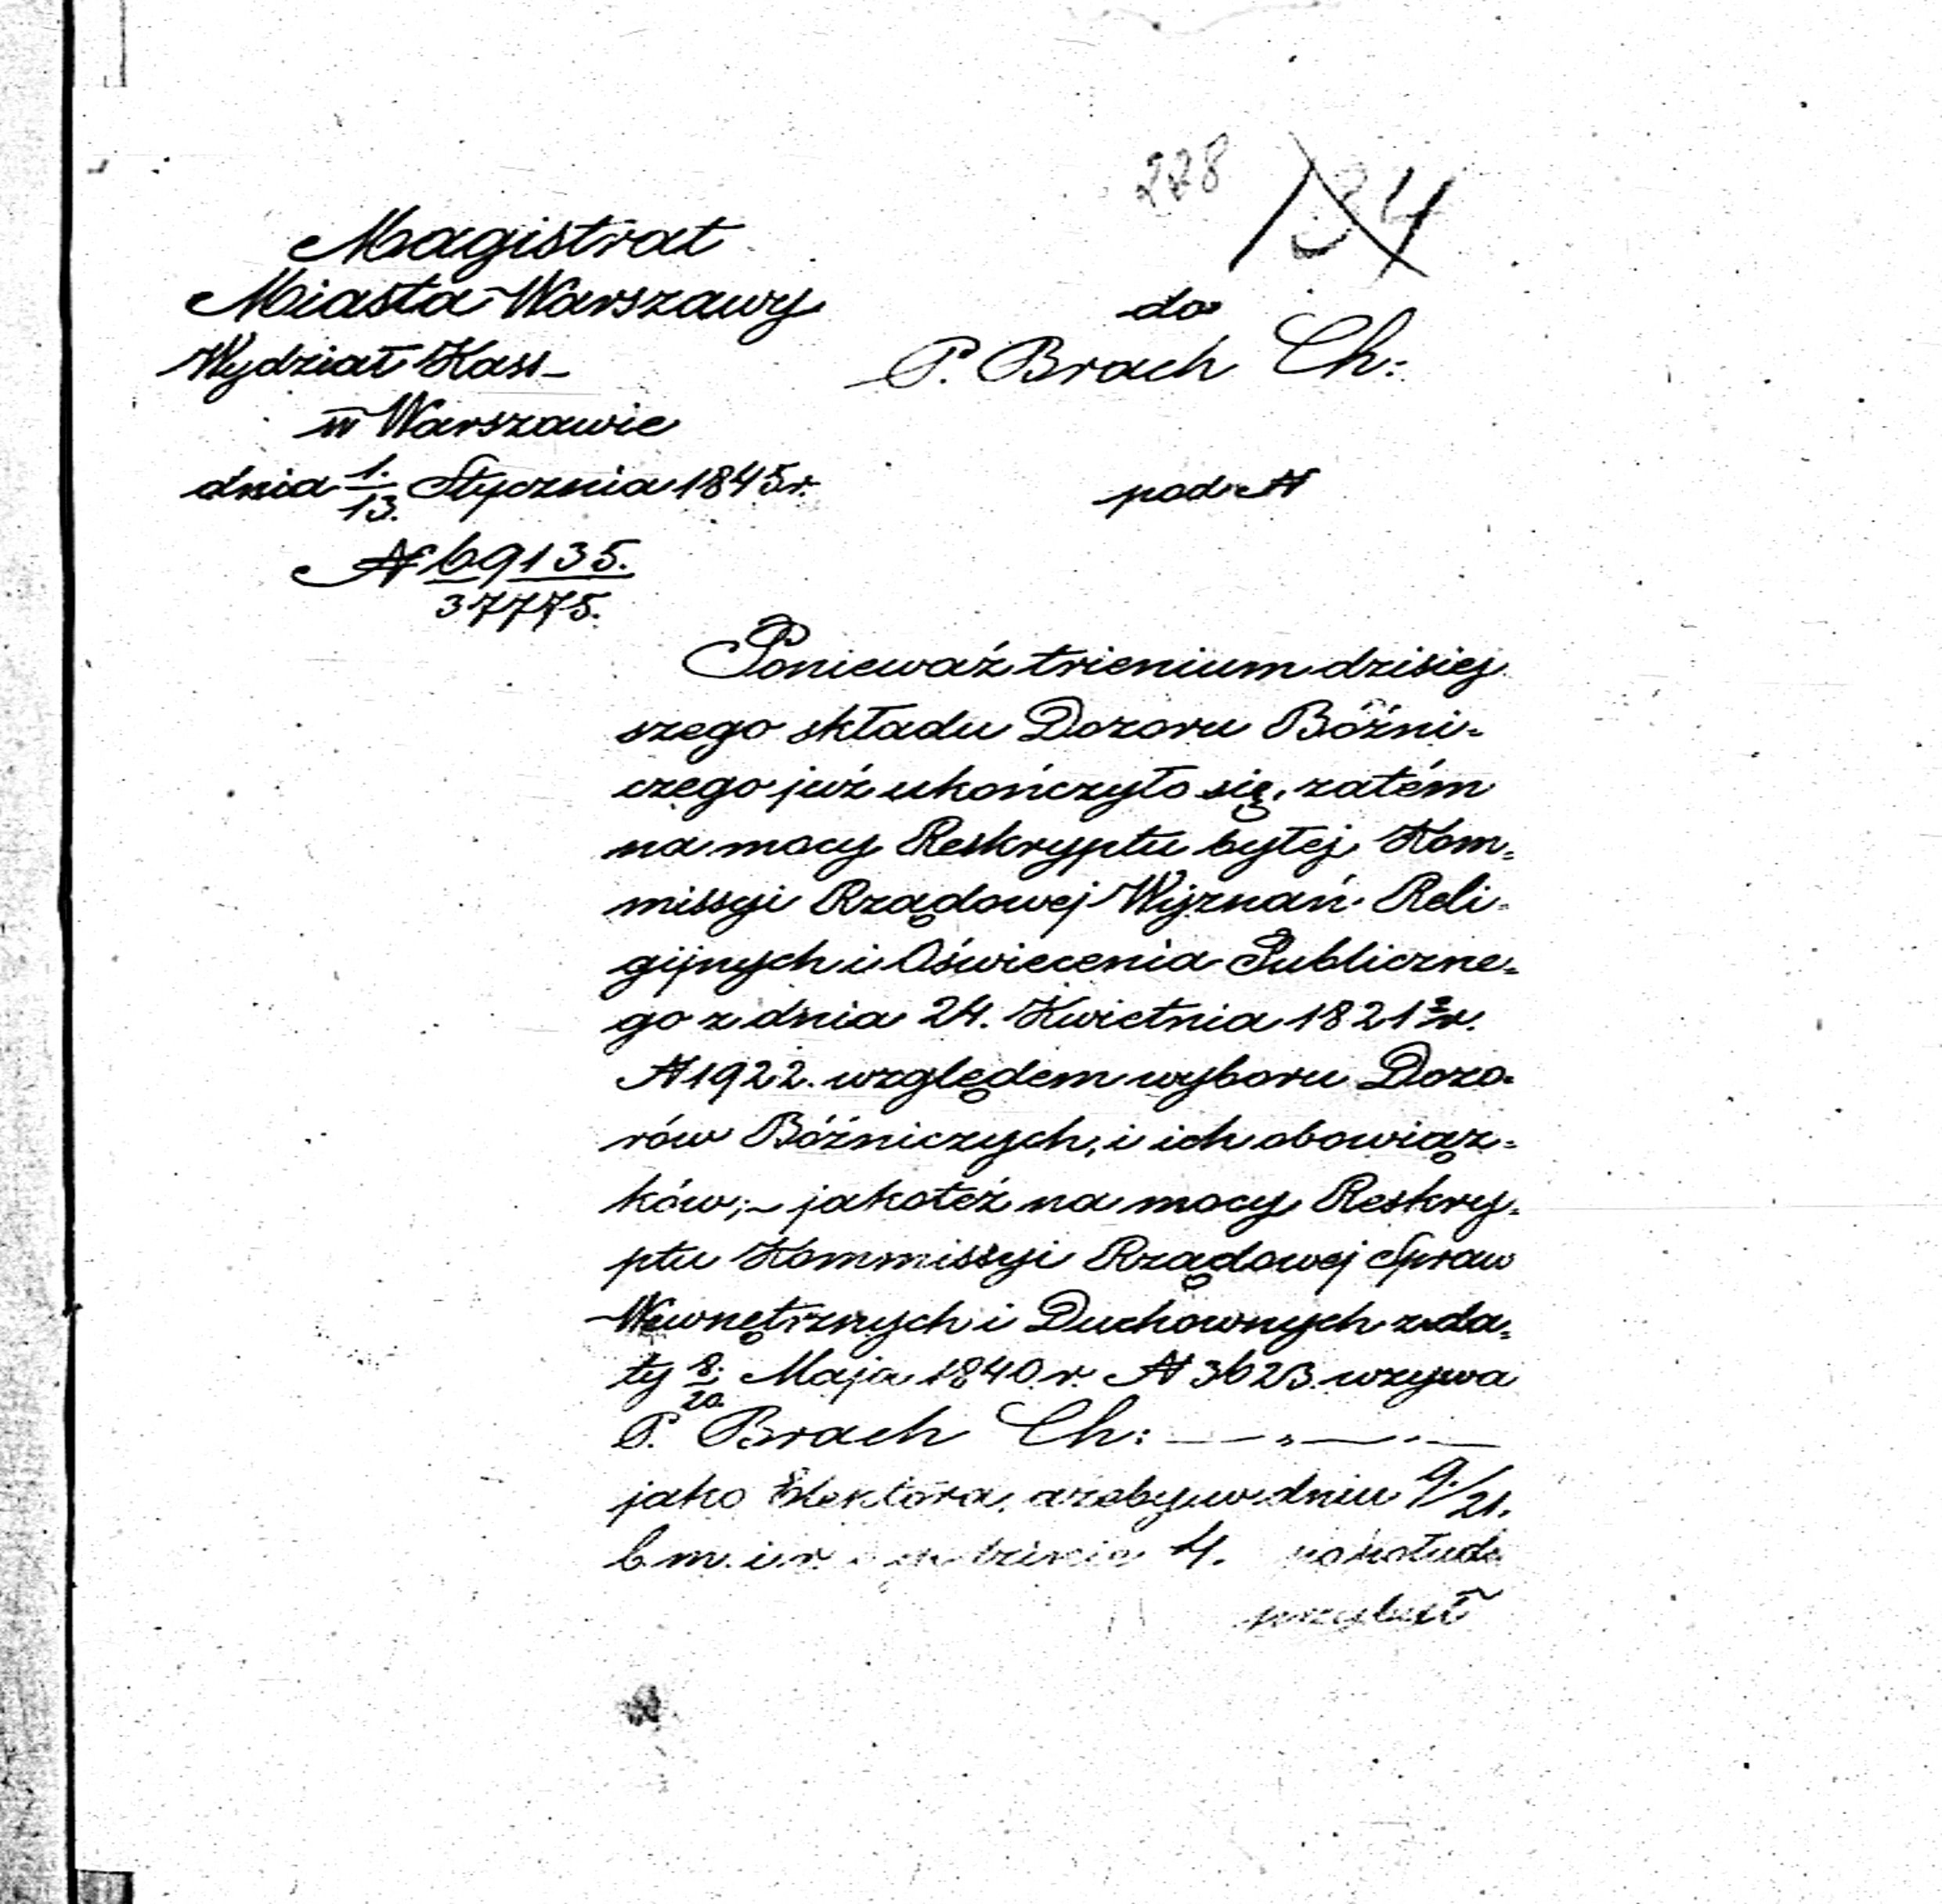 228 134
Magistrat
Miasta Warszawy
Wydział Kass
w Warszawie
dnia 1./13. Stycznia 1845 r.
N 69135./37775.
do
P. Brach Ch:
pod N
Ponieważ trienium dzisiej
szego składu Dozoru Bóźni-
czego już ukończyło się, zatém
na mocy Reskryptu byłej Kom-
missyi Rządowej Wyznań Reli-
gijnych i Oświecenia Publiczne-
go z dnia 24. Kwietnia 1821 r.
N 1922. względem wyboru Dozo-
rów Bóźniczych, i ich obowiąz-
ków; – jakoteż na mocy Reskry-
ptu Kommissyi Rządowej Spraw
Wewnętrznych i Duchownych z da-
ty 8./20. Maja 1840 r. N 3623. wzywa
P. Brach Ch:
jako Elektora, azeby w dniu 9./21.
b m. i r. o godzinie 4. popołud:
przybył